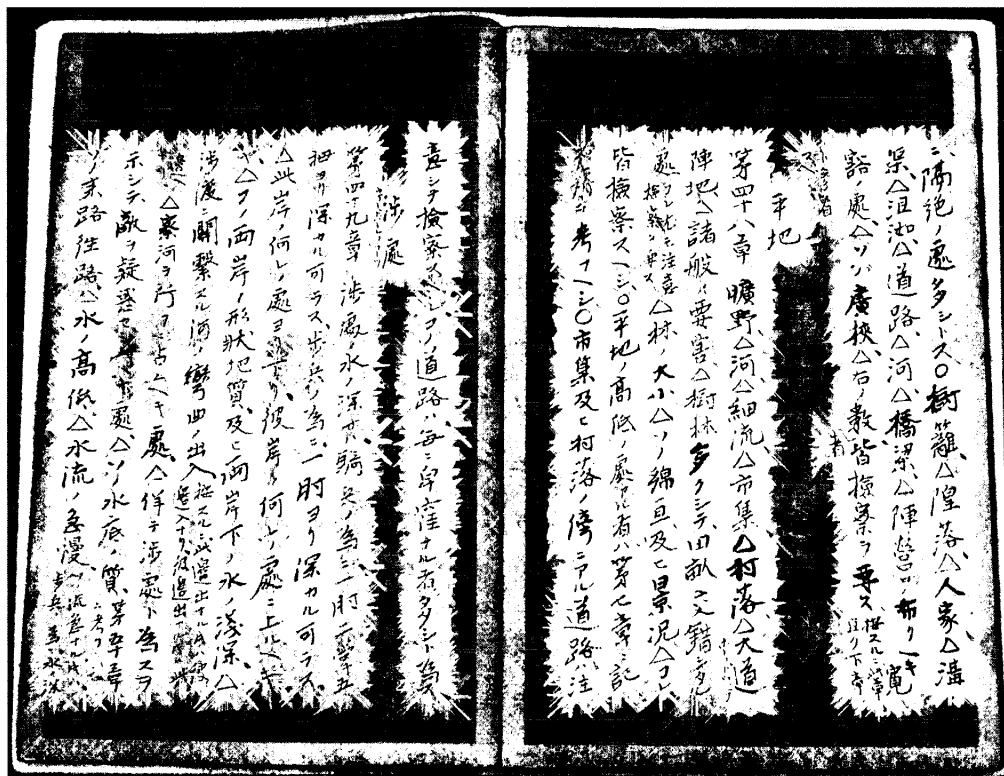 ニ隔絶ノ處多シトス〇樹籬△隍落△人家△溝
渠△沮洳△道路△河△橋梁△陣營ヲ布クヘキ寛
豁ノ處△ソノ廣狹△右ノ數皆撿察ヲ要ス
平地
第四十八章 曠野△河△細流△市集△村落△大道
陣地△諸般ノ要害△樹林多クシテ田畝交錯
處 △林ノ大小△ソノ綿亘及ヒ景况△コレ
皆撿察スヘシ〇平地ノ高低ノ處アル者ハ第七章ニ記
考フヘシ〇市集及ヒ村落ノ傍ニアル道路ハ注
意シテ檢察スヘシコノ道路ハ毎ニ卑窪ナル者多シト爲ス
涉處
第四十九章 涉處ノ水ノ深サ騎兵ノ爲ニ一肘二掌五
ヨリ深カル可ラス歩兵ノ爲ニ一肘ヨリ深カル可ラス
△此岸ノ何レノ處ヨリ下リ彼岸ノ何レノ處ニ上ルヘキ
ヤ△ソノ両岸ノ形狀地質及ヒ両岸下ノ水ノ淺深△
涉渡ニ關繫スル河ノ彎曲ノ出入
△塞河ヲ行フ 占ムヘキ處△佯テ涉處ト爲スヲ
示シテ敵ヲ疑惑セシムヘキ處△ソノ水底ノ質 第五章
ノ來路徃路△水ノ高低△水流ノ急慢